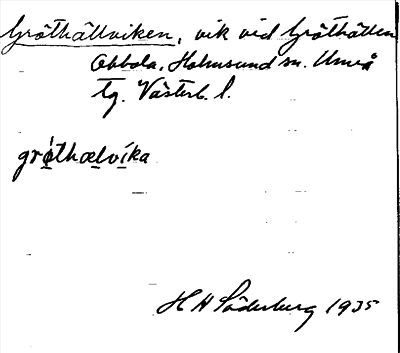 Gröthällviken, vik vid Gröthällen
Obbola, Holmsund sn. Umeå
tg. Västerb. l.
grøthælvika
H A Söderberg 1935